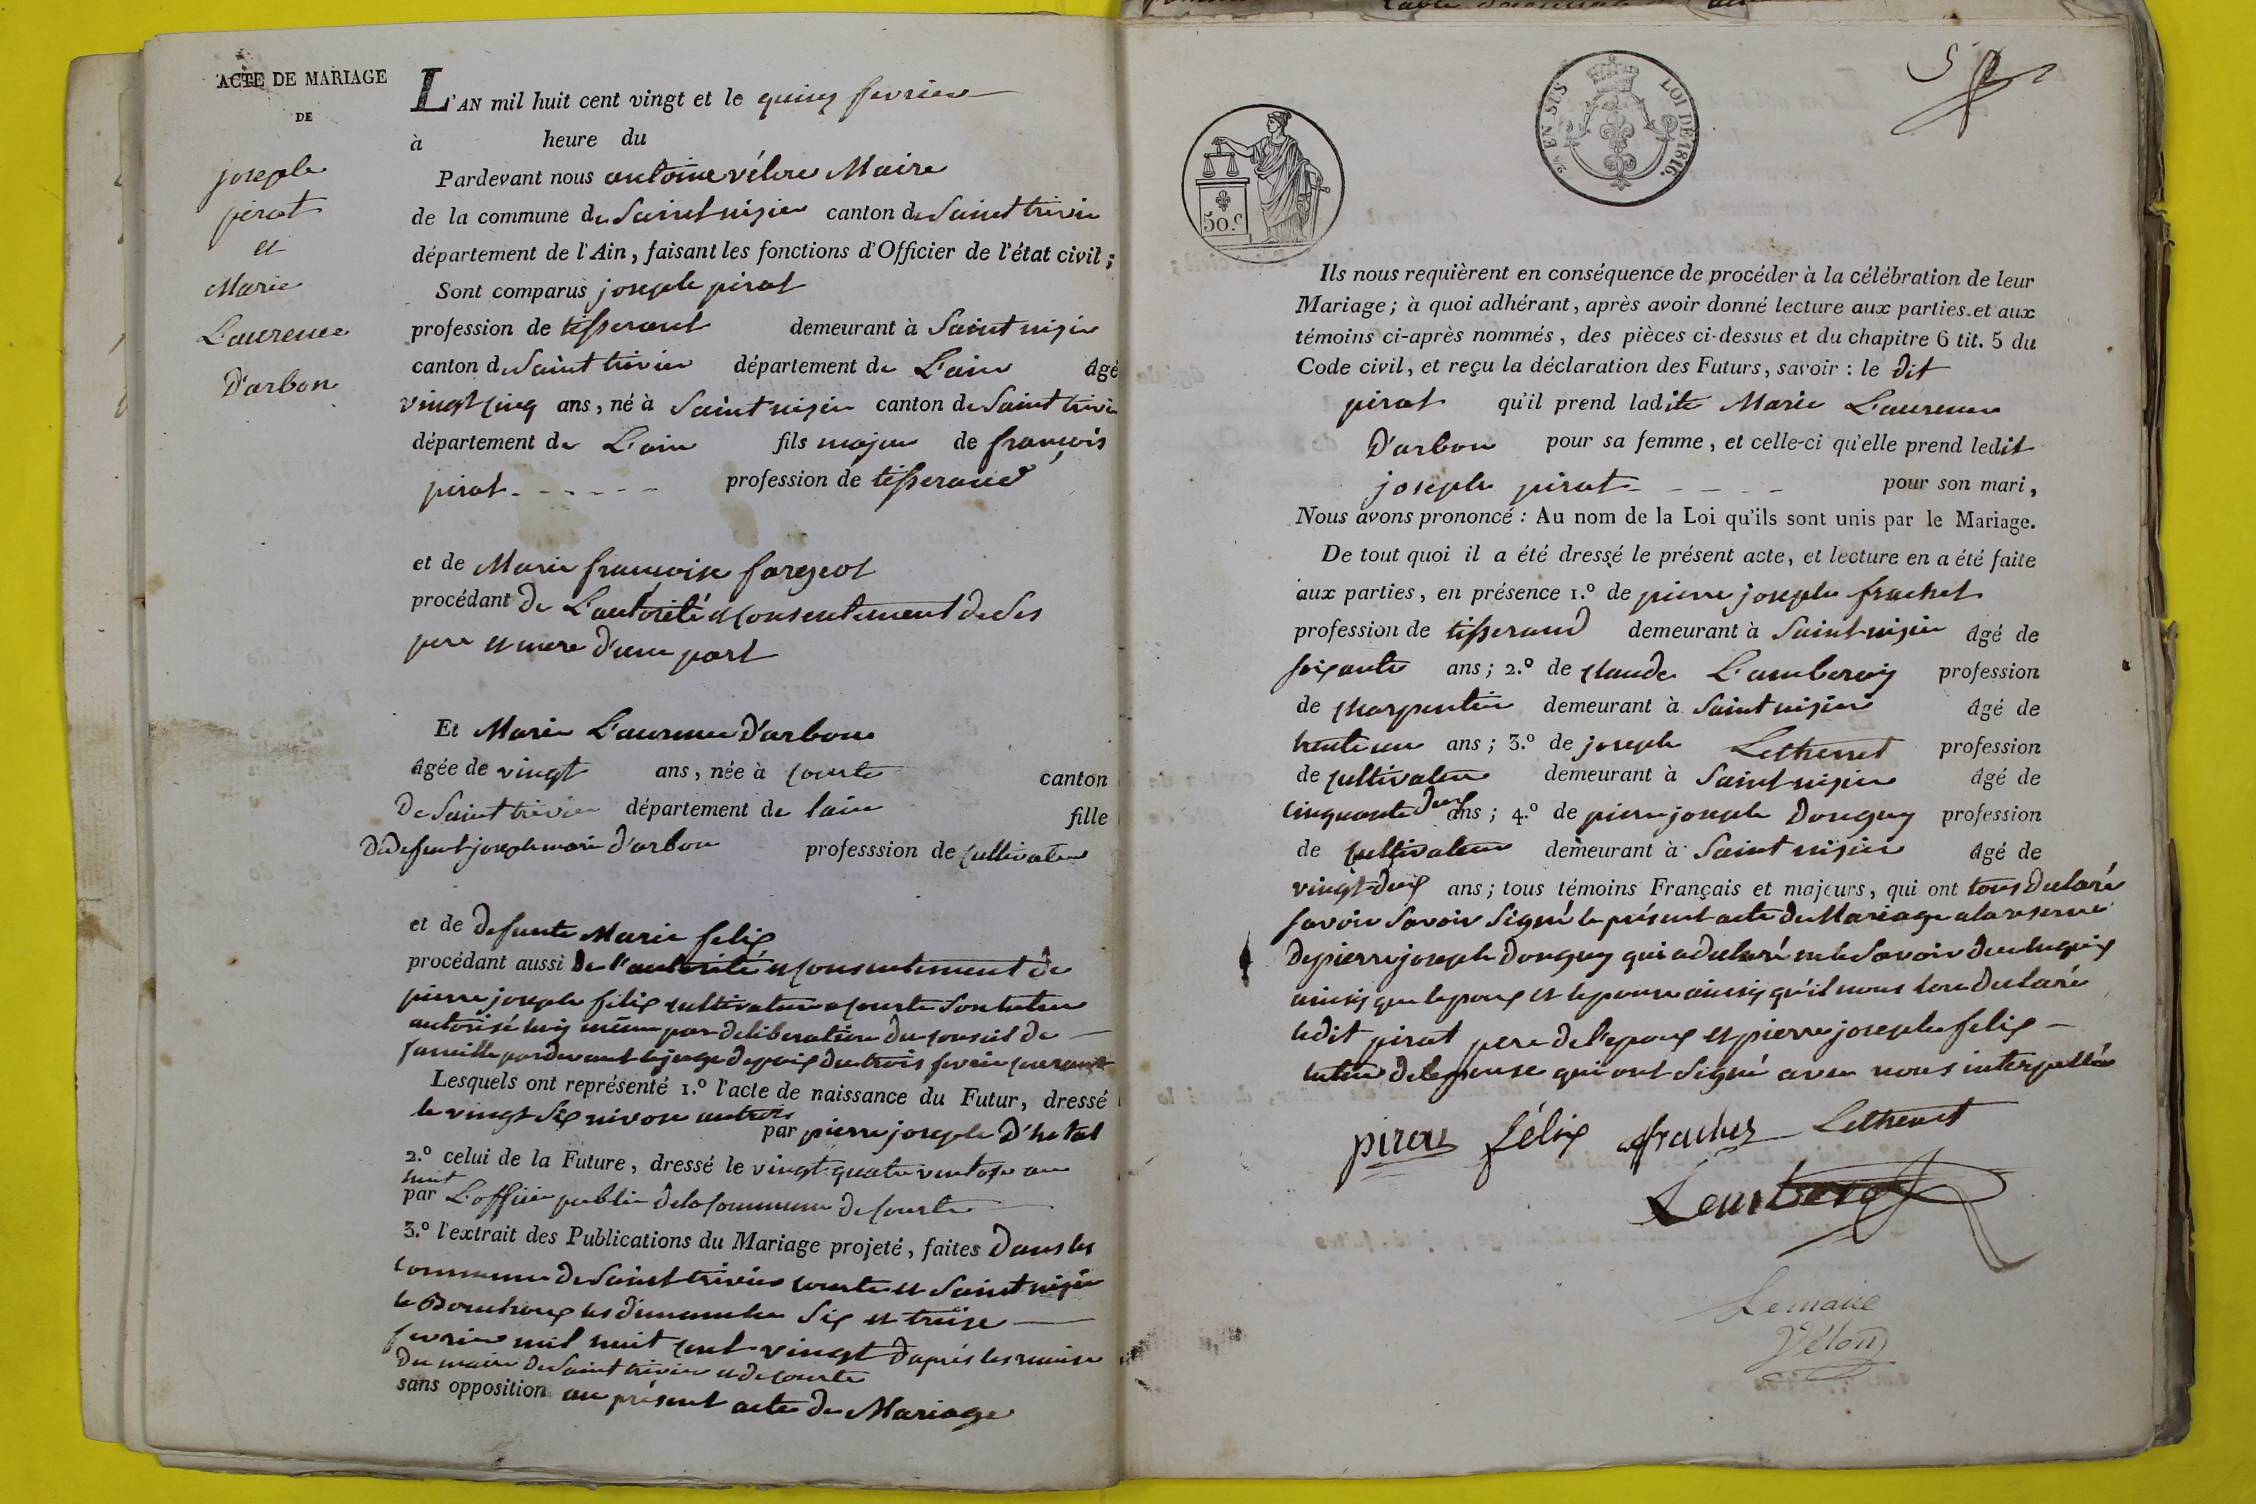 ACTE DE MARIAGE
DE
joseple
pirat
et
Marie
Laurence
D'arbon
L'AN mil huit cent vingt et le quinz fevrier
à heure du
Pardevant nous antoine véłon Maire
de la commune de Saint nisier canton de Saint trivier
département de l'Ain, faisant les fonctions d'Officier de l'état civil;
Sont comparus joseph pirat
profession de tisserant demeurant à Saint nisier
canton de Saint trivier département de L'ain âgé
vingt cinq ans, né à Saint nisier canton de Saint trivier
département de L'ain fils majeur de françois
pirat profession de tisserand
et de Marie françoise fargeot
procédant de L'autorité et consentement de ses
pere et mere d'une part
Et Marie Laurence D'arbon
âgée de vingt ans, née à Courte canton
De Saint trivier département de lain fille
De defunt joseph marie D'arbon professsion de Cultivateur
et de defunte Marie felix
procédant aussi de l'autorité et consentement de
pierre joseph felix cultivateur a courte son tuteur
autorisé luy même par deliberation du conseil de
famille pardevant le juge de paix du trois fevrier courant
Lesquels ont représenté 1.º l'acte de naissance du Futur, dressé
le vingt six nivose an trois
par pierre joseph D'hetal
2.º celui de la Future, dressé le vingt quatre ventose an
huit
par L'officier public de la Commune de Courte
3.º l'extrait des Publications du Mariage projeté, faites Dans les
commune de Saint trivier courte et Saint nisier
le Bouchoux les dimanche Six et treize
fevrier mil huit cent vingt d'aprés les remise
du maire de Saint trivier et de courte
sans opposition au présent acte de Mariage
5
EN SUS LOI DE 1816.
50.C
Ils nous requièrent en conséquence de procéder à la célébration de leur
Mariage; à quoi adhérant, après avoir donné lecture aux parties et aux
témoins ci-après nommés, des pièces ci-dessus et du chapitre 6 tit. 5 du
Code civil, et reçu la déclaration des Futurs, savoir: le dit
pirat qu'il prend ladite Marie Laurence
D'arbon pour sa femme, et celle-ci qu'elle prend ledit
joseph pirat pour son mari,
Nous avons prononcé: Au nom de la Loi qu'ils sont unis par le Mariage.
De tout quoi il a été dressé le présent acte, et lecture en a été faite
aux parties, en présence 1.º de pierre joseph frachet
profession de tisserand demeurant à Saint nisier âgé de
soixante ans; 2.º de Claude Lamberoy profession
de Charpentier demeurant à Saint nisier âgé de
trente un ans; 3.º de joseph Lethenet profession
de Cultivateur demeurant à Saint nisier âgé de
cinquante deux ans; 4.º de pierre joseph Donguy profession
de Cultivateur demeurant à Saint nisier âgé de
vingt deux ans; tous témoins Français et majeurs, qui ont tous declaré
savoir Savoir Signé le présent acte de Mariage a la reserve
de pierre joseph Donguy qui a declaré ne le savoir de ce enquis
ainsy que lepoux et lepouse ainsy qu'il nous lont declaré
ledit pirat pere de l'epoux et pierre joseph felix
tuteur de lepouse qui ont Signé avec nous interpellés
pirat félix frachet Lethenet
Lamberoy
Le maire
Vélon